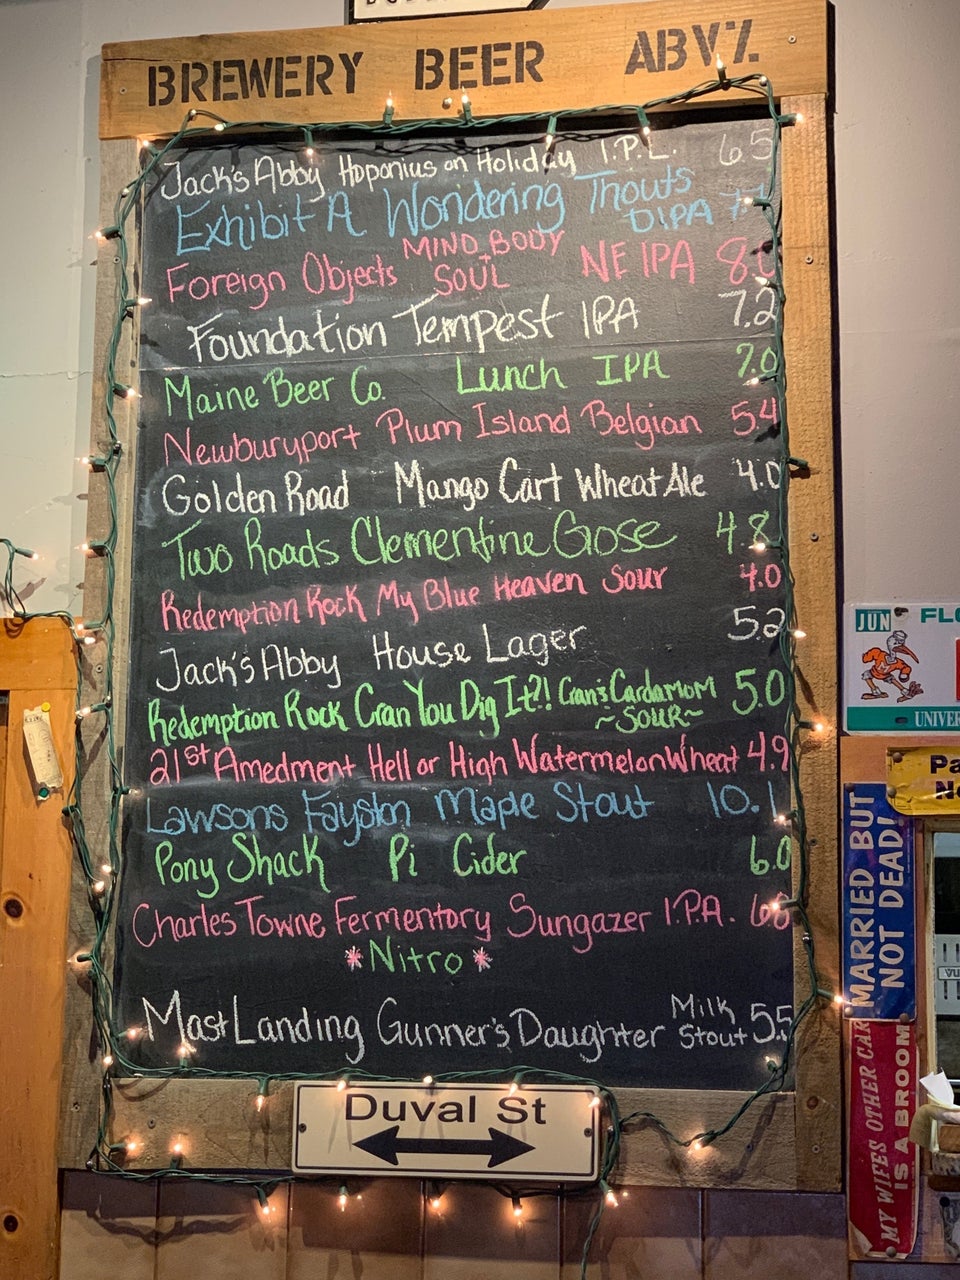 BREWERY BEER ABV%
Jack's Abby Hoponius on Holiday I.P.L. 6.5
Exhibit A Wondering Thouts DIPA
Foreign Objects MIND BODY SOUL NE IPA 8.0
Foundation Tempest IPA 7.2
Maine Beer Co. Lunch IPA 7.0
Newburyport Plum Island Belgian 5.4
Golden Road Mango Cart Wheat Ale 4.0
Two Roads Clementine Gose 4.8
Redemption Rock My Blue Heaven Sour 4.0
Jack's Abby House Lager 5.2
Redemption Rock Cran You Dig It?! Cran & Cardamom 5.0
~SOUR~
21st Amedment Hell or High Watermelon Wheat 4.9
Lawsons Fayston Maple Stout 10.1
Pony Shack Pi Cider 6.0
Charles Towne Fermentory Sungazer I.P.A. 6.8
*Nitro*
Mast Landing Gunner's Daughter Milk Stout 5.5
Duval St
JUN
FLO
UNIVER
MARRIED BUT
NOT DEAD!
MY WIFES OTHER CAR
IS A BROOM